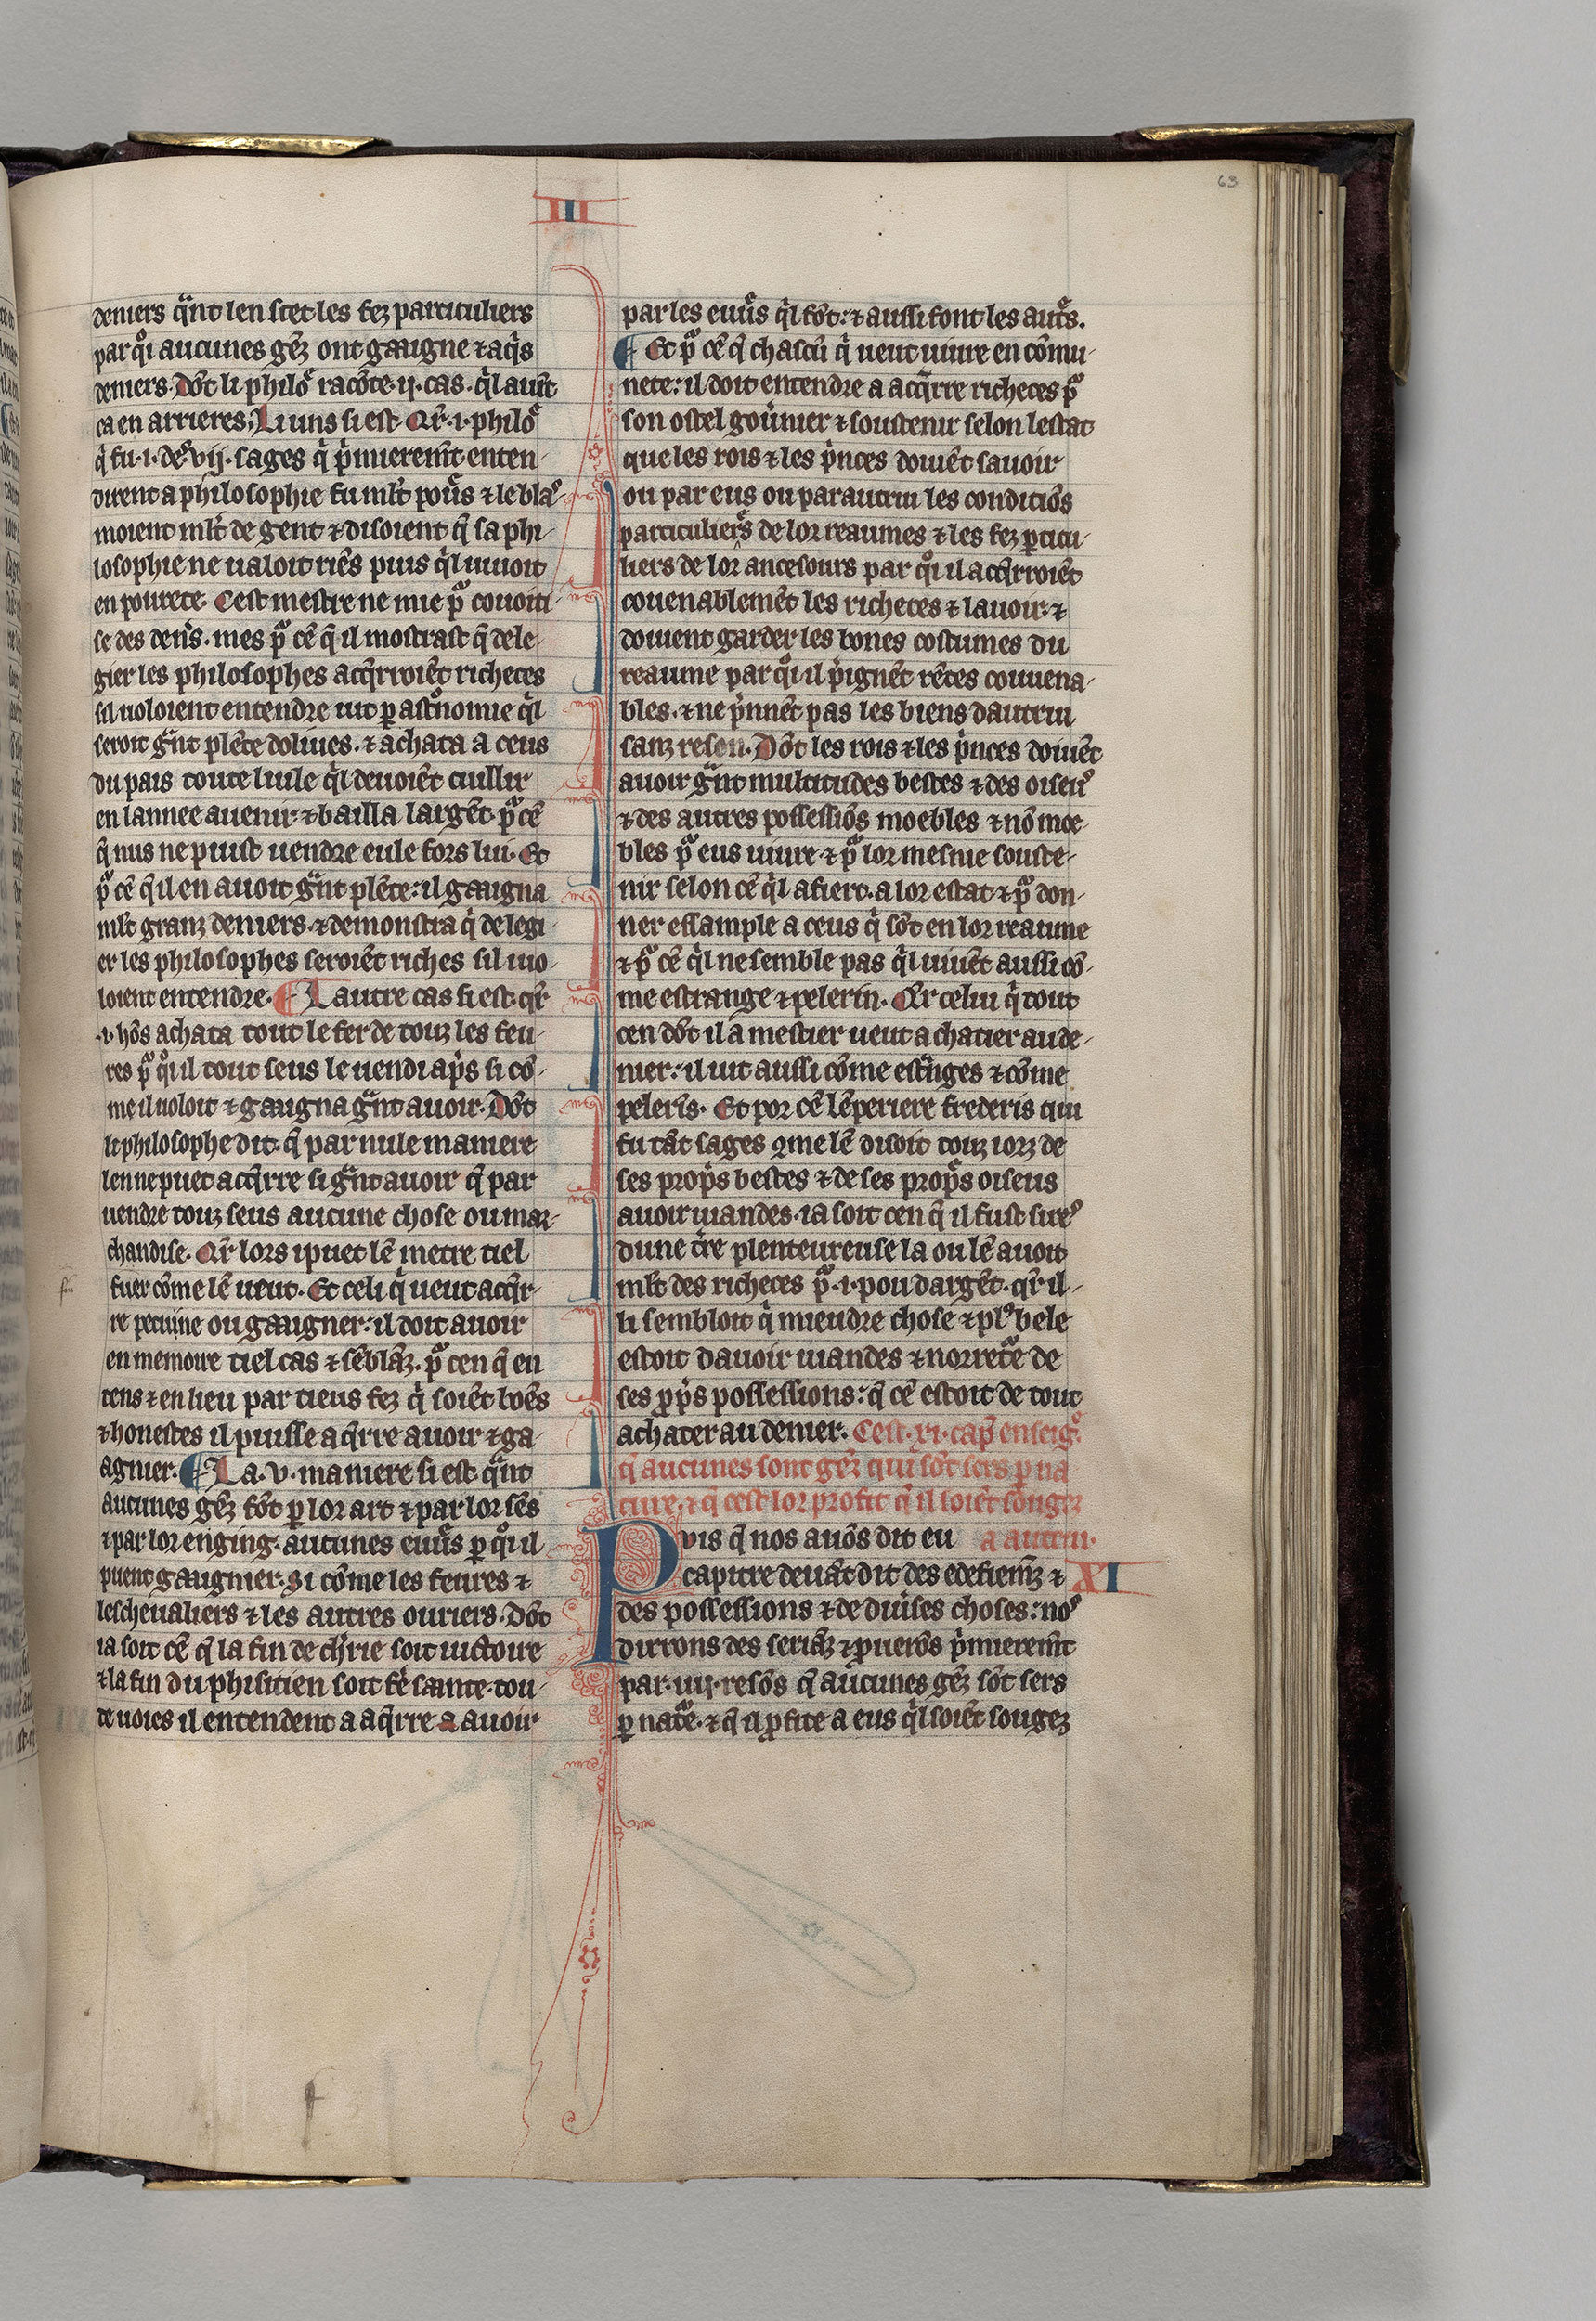 63
III
deniers q̃nt len scet les fez particuliers
par qͦi aucunes gẽz ont gaaigne ⁊ aq̃s
deniers. Dõt li philõ racõte .ij. cas. q̃l auĩt
ca en arrieres. Li uns si est. Qr̃ .i. philõ
q̃ fu .i. des .vij. sages q̃ p̃mierem̃t enten-
dirent a philosophie fu ml̃t pou̾s ⁊ le blaˀ-
moient ml̃t de gent ⁊ disoient q̃ sa phi-
losophie ne ualoit riẽs puis q̃l uiuoit
en pourete. Cest mestre ne mie pͣ couoiti-
se des den̾s. mes pͣ cẽ q̃ il mostrast q̃ de le-
gier les philosophes acq̃rroiẽt richeces
sil uoloient entendre uit ꝑ astͦnomie q̃l
seroit g̃nt plẽte doliues. ⁊ achata a ceus
du pais toute luile q̃l deuoiẽt cuillir
en lannee auenir ⁊ bailla largẽt. pͣ cẽ
q̃ nus ne puist uendre eule fors lui. Et
pͣ cẽ q̃il en auoit g̃nt plẽte: il gaaigna
ml̃t granz deniers. ⁊ demonstra q̃ de legi-
er les philosophes seroiẽt riches sil uo-
loient entendre. ¶ Lautre cas si est. qr̃
.i. hõs achata tout le fer de touz les feu-
res pͣ qͦi il tout seus le uendi ap̃s si cõ-
me il uoloit ⁊ gaaigna g̃nt auoir. Dõt
li philosophe dit. q̃ par nule maniere
len ne puet acq̃rre si g̃nt auoir q̃ par
uendre touz seus aucune chose ou mar-
chandise. Qr̃ lors i puet lẽ metre tiel
fuer cõme lẽ ueut. Et celi q̃ ueut acq̃r-
re pecuine ou gaaigner: il doit auoir
en memoire tiel cas ⁊ sẽblãz. pͣ cen q̃ en
tens ⁊ en lieu par tieus fez q̃ soiẽt boẽs
⁊ honestes il puisse aq̃rre auoir ⁊ ga-
agnier. ¶ La .v. maniere si est q̃nt
aucunes gẽz fõt ꝑ lor art ⁊ par lor sẽs
⁊ par lor enging. aucunes euur̾s ꝑ qͦi il
puent gaaignier. Si cõme les feures ⁊
les cheualiers ⁊ les autres ouriers. Dõt
ia soit cẽ q̃ la fin de ch̾rie soit uictoire
⁊ la fin du phisitien soit fẽ sante. tou-
te uoies il entendent a aq̃rre a auoir
par les euur̾s q̃l fõt: ⁊ aussi font les aut̾s.
¶ Et pͣ cẽ q̃ chascũ q̃ ueut uiure en cõmu-
nete: il doit entendre a acq̃rre richeces pͣ
son ostel gou̾ner ⁊ soustenir selon lestat
que les rois ⁊ les p̃nces doiuẽt sauoir
ou par eus ou par autrui les conditiõs
particulier̾s de lor reaumes ⁊ les fez ꝑticu-
liers de lor ancesours par qͦi il acq̃rroiẽt
couenablemẽt les richeces ⁊ lauoir. ⁊
doiuent garder les bones costumes du
reaume par qͦi il p̃ignẽt rẽtes couuena-
bles. ⁊ ne p̃nnẽt pas les biens dautrui
sanz reson. Dõt les rois ⁊ les p̃nces doiuẽt
auoir g̃nt multitudes bestes ⁊ des oiseuˀ
⁊ des autres possessiõs moebles ⁊ nõ moe-
bles pͣ eus uiure ⁊ pͣ lor mesnie souste-
nir selon cẽ q̃l afiert. a lor estat ⁊ pͣ don-
ner essample a ceus q̃ sõt en lor reaume
⁊ pͣ cẽ q̃l ne semble pas q̃l uiuẽt aussi cõ-
me estrange ⁊ pelerin. Qr̃ celui q̃ tout
cen dõt il a mestier ueut achatier au de-
nier: il uit aussi cõme est̃nges ⁊ cõme
peler̃s. Et por cẽ lẽperiere frederis qui
fu tãt sages ꝯme lẽ disoit touz iorz de
ses prop̃s bestes ⁊ de ses prop̃s oiseus
auoir uiandes. ia soit cen q̃ il fust sireˀ
dune t̾re plenteureuse la ou lẽ auoit
ml̃t des richeces pͣ .i. pou dargẽt. qr̃ il
li sembloit q̃ miendre chose ⁊ plˀ bele
estoit dauoir uiandes ⁊ norretͣe de
ses ꝓp̃s possessions: q̃ cẽ estoit de tout
achater au denier. Cest .xi. cap̃ enseig̾.
q̃ aucunes sont gẽz qui sõt sers ꝑ na
ture. ⁊ q̃ cest lor profit q̃ il soiẽt sougez
a autrui.
Puis q̃ nos auõs dit eu
XI
capitre deuãt dit des edefiem̃z ⁊
des possessions ⁊ de diu̾ses choses: noˀ
dirrons des seriãz ⁊ ꝓuerõs p̃mierem̃t
par .iiij. resõs q̃ aucunes gẽz sõt sers
ꝑ natͣe. ⁊ q̃ il ꝓfite a eus q̃l soiẽt sougez